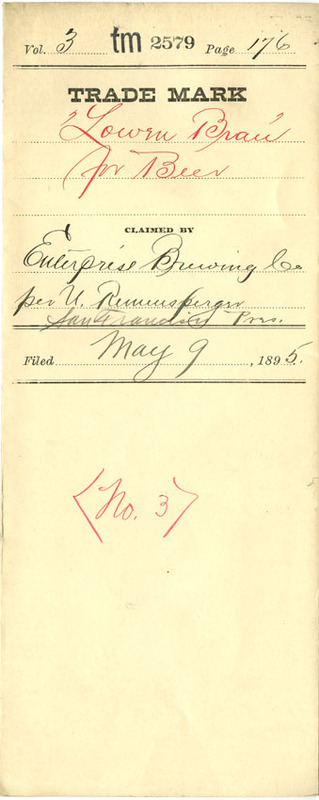 Vol. 3 tm 2579 Page 176
TRADE MARK
"Lowen Brau"
for Beer
CLAIMED BY
Enterprise Brewing Co
per U. Remensperger
San Francisco Pres.
Filed May 9, 1895.
(No. 3)